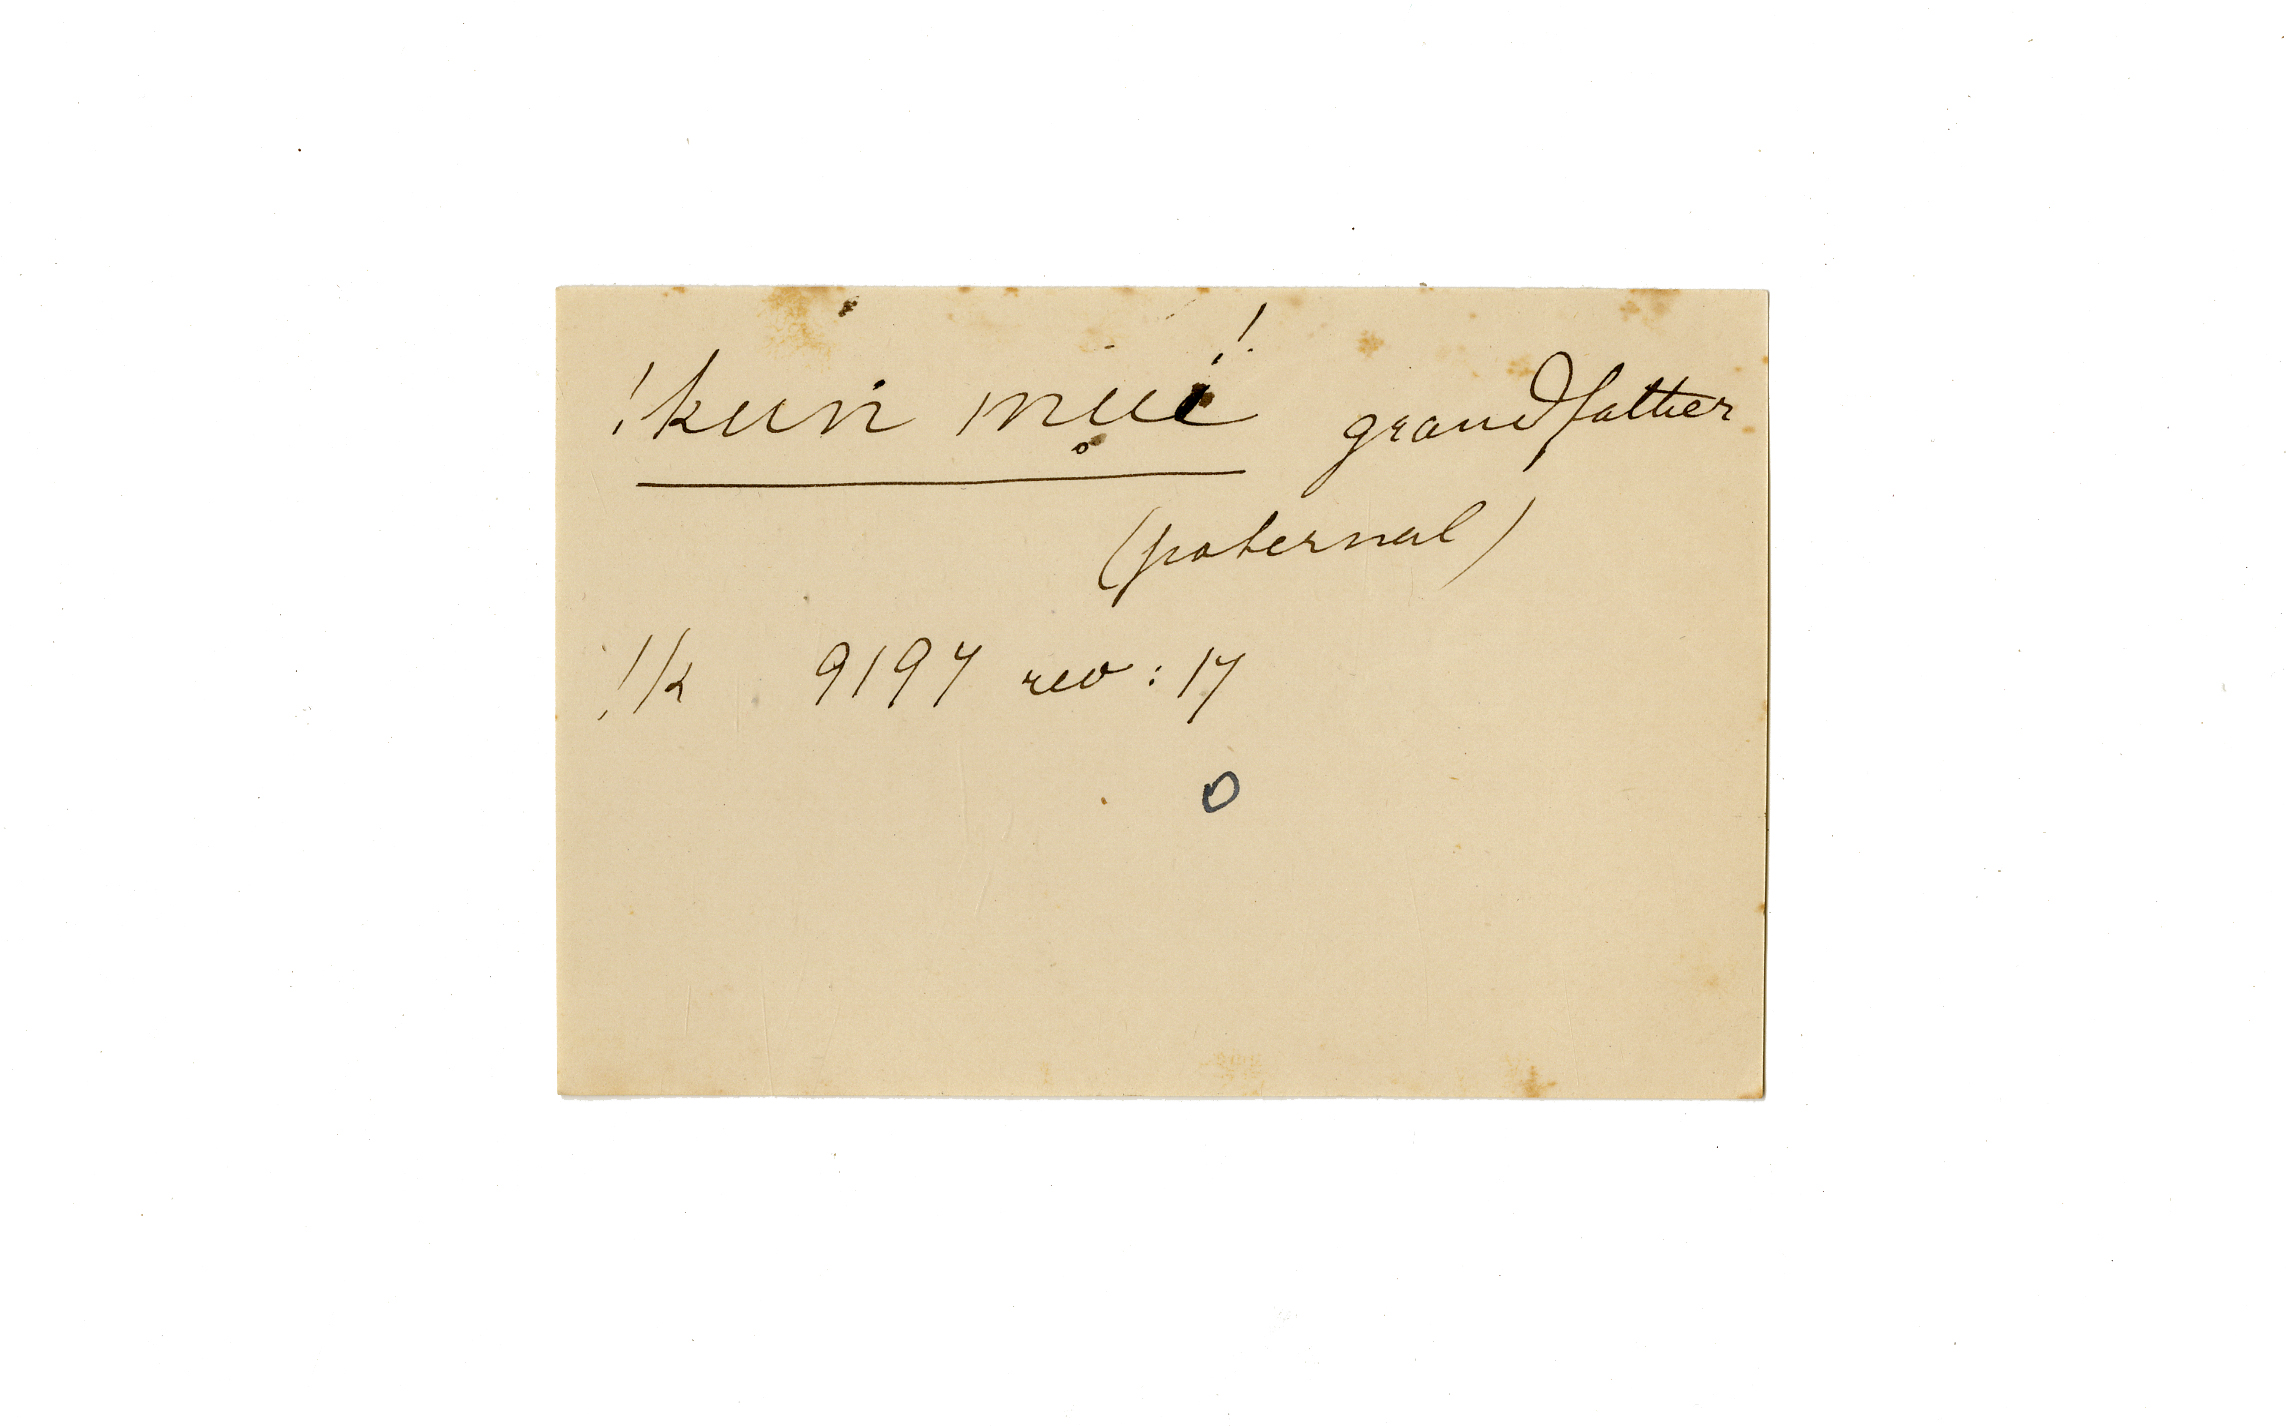 !kuṅ mu̥i! grandfather
(paternal)
!k 9197 rev: 17
O